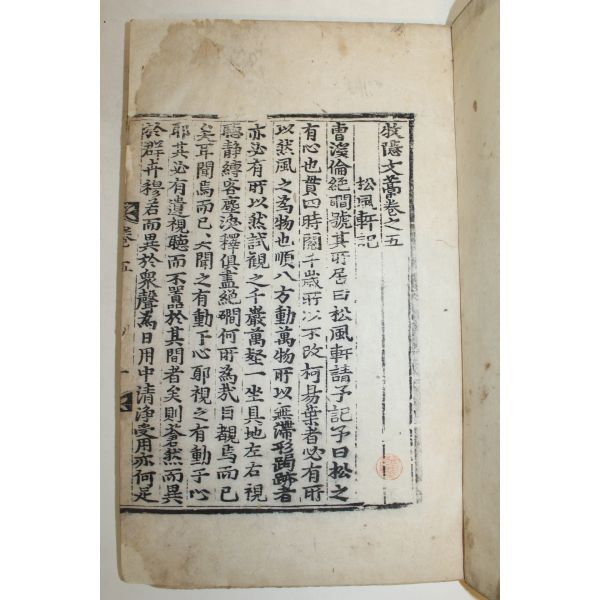 牧隱文藁卷之五
松風軒記
曹溪倫絕磵號其所居曰松風軒請予記予曰松之
有心也貫四時閱千歲所以不改柯易葉者必有所
以然風之爲物也順八方動萬物所以無滯形躅跡者
亦必有所以然試觀之千巖萬壑一坐具地左右視
聽靜縛客塵淡釋俱盡絕磵何所爲哉目覩焉而已
矣耳聞焉而已夫聞之有動于心耶視之有動于心
耶其必有遺視聽而不囂於其間者矣則蒼然而異
於群卉穆若而異於衆聲爲日用中清淨受用亦何足
卷五
一